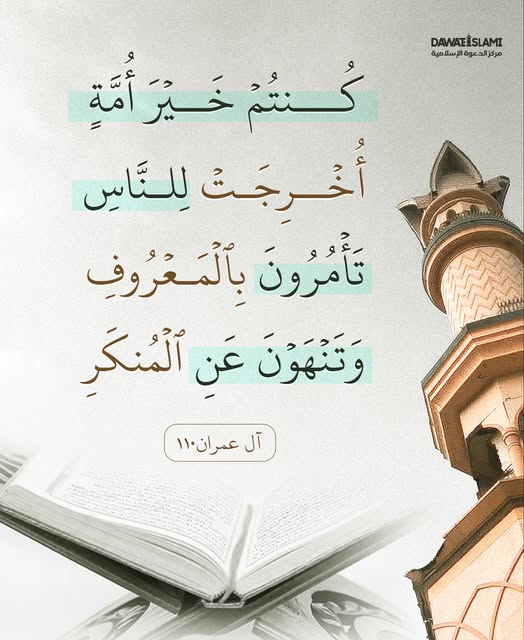 DAWATEISLAMI
مركز الدعوة الإسلامية
كُنتُمْ خَيْرَ أُمَّةٍ
أُخْرِجَتْ لِلنَّاسِ
تَأْمُرُونَ بِٱلْمَعْرُوفِ
وَتَنْهَوْنَ عَنِ ٱلْمُنكَرِ
آل عمران ١١٠